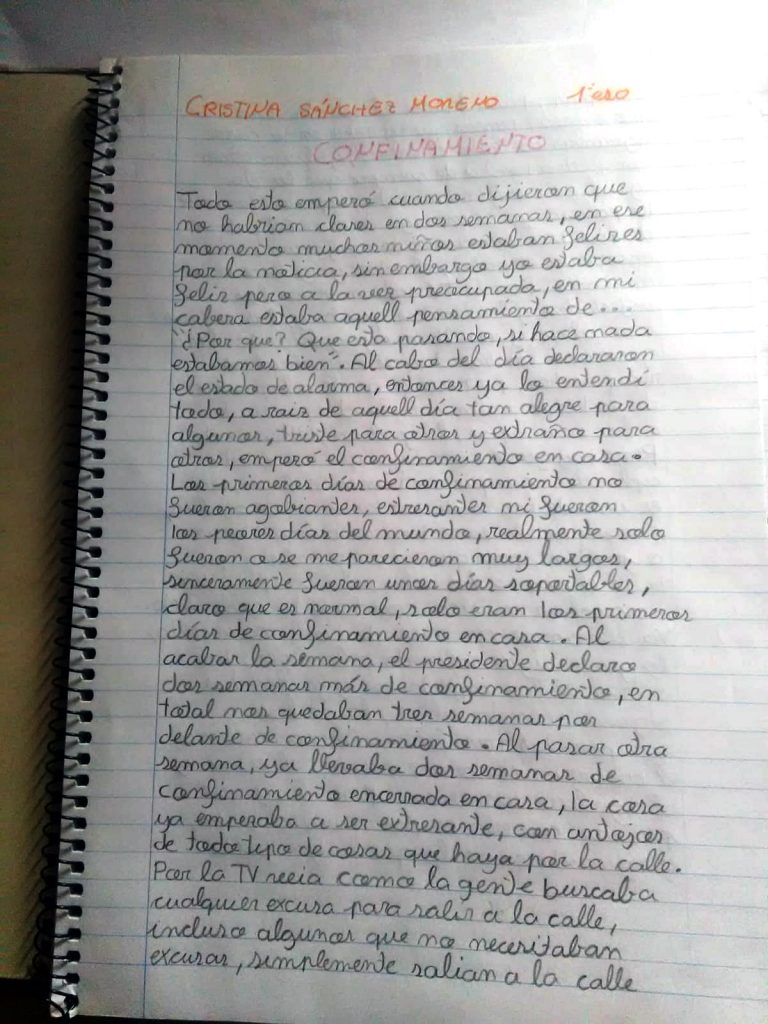 CRISTINA SÁNCHEZ MORENO 1º eso
CONFINAMIENTO
Todo esto empezó cuando dijieron que
no habrian clases en dos semanas, en ese
momento muchos niños estaban felizes
por la noticia, sin embargo yo estaba
feliz pero a la vez preocupada, en mi
cabeza estaba aquell pensamiento de...
"¿Por que? Que esta pasando, si hace nada
estabamos bien". Al cabo del día declararon
el estado de alarma, entonces ya lo entendí
todo, a raiz de aquell día tan alegre para
algunos, triste para otros y extraño para
otros, empezó el confinamiento en casa.
Los primeros días de confinamiento no
fueron agobiantes, estresantes ni fueron
los peores días del mundo, realmente solo
fueron o se me parecieron muy largos,
sinceramente fueron unos días soportables,
claro que es normal, solo eran los primeros
días de confinamiento en casa. Al
acabar la semana, el presidente declaro
dos semanas más de confinamiento, en
total nos quedaban tres semanas por
delante de confinamiento. Al pasar otra
semana, ya llevaba dos semanas de
confinamiento encerrada en casa, la cosa
ya empezaba a ser extresante, con antojos
de todo tipo de cosas que haya por la calle.
Por la TV veia como la gente buscaba
cualquier excusa para salir a la calle,
incluso algunos que no necesitaban
excusas, simplemente salian a la calle